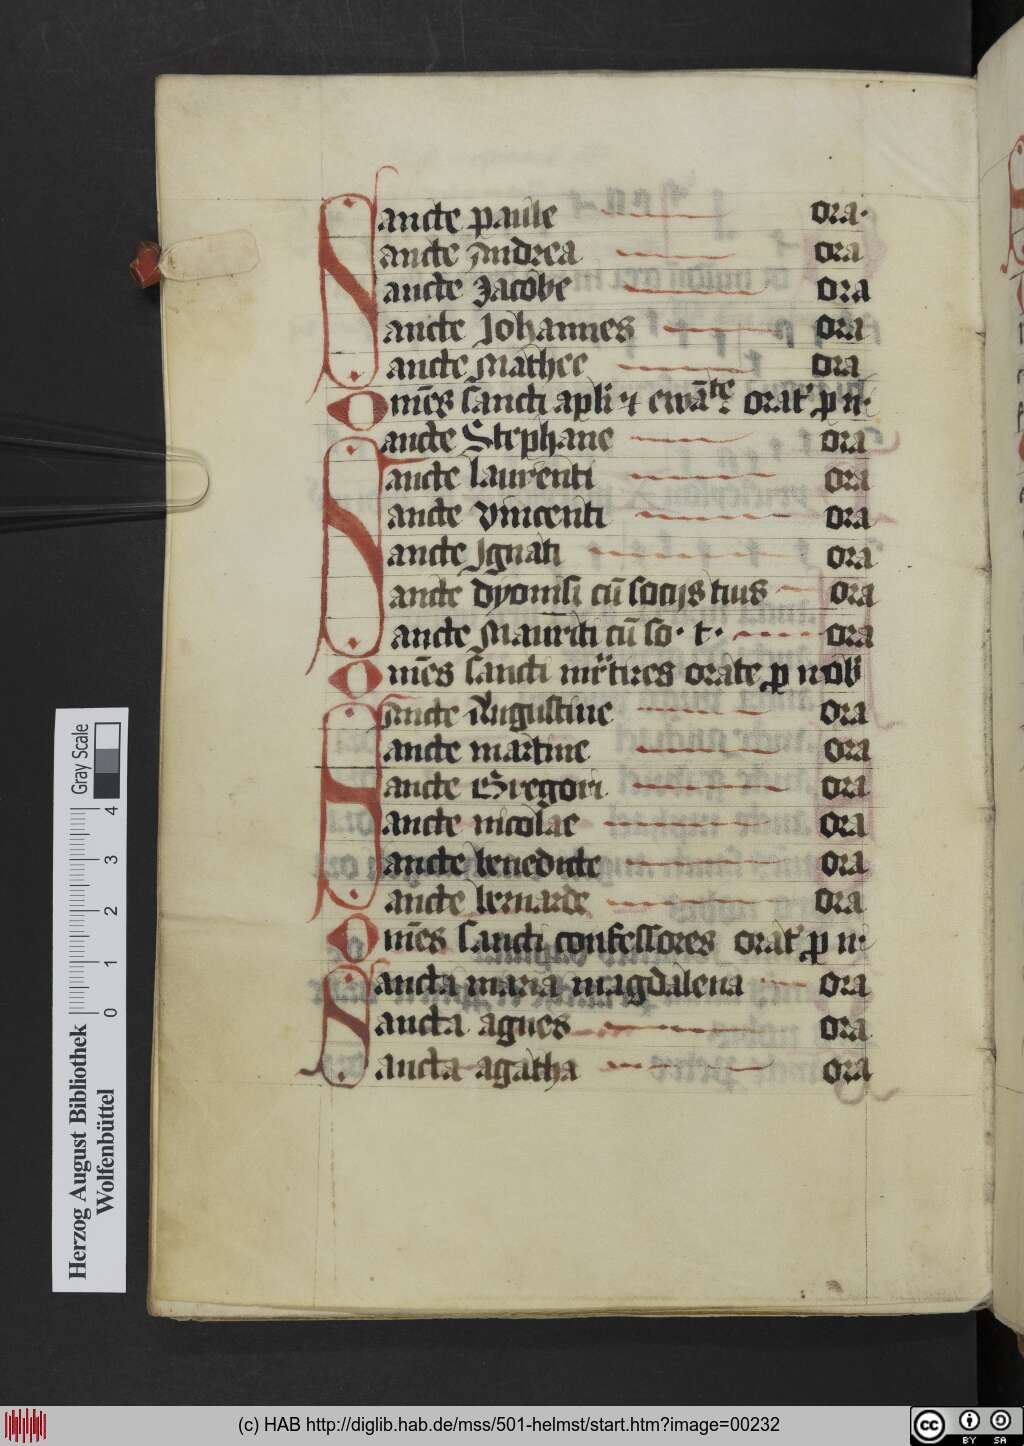 Sancte paule ora·
Sancte Andrea ora
Sancte Jacobe ora
Sancte Johannes ora
Sancte Mathee ora
Om̄es sancti apl̄i ⁊ ewā᷑te orat᷑ ꝓ n·
Sancte Stephane ora
Sancte laurenti ora
Sancte vincenti ora
Sancte Ignati ora
Sancte dyonisi cū socijs tuis ora
Sancte Mauriti cū so· t· ora
Om̄es sancti mr̄tires orate ꝓ nob̄
Sancte Augustine ora
Sancte martine ora
Sancte Gregori ora
Sancte nicolae ora
Sancte benedicte ora
Sancte bernarde ora
Om̄es sancti confessores orat᷑ ꝓ n·
Sancta maria magdalena ora
Sancta agnes ora
Sancta agatha ora
Herzog August Bibliothek
Wolfenbüttel
0 1 2 3 4
Gray Scale
(c) HAB http://diglib.hab.de/mss/501-helmst/start.htm?image=00232
cc BY SA